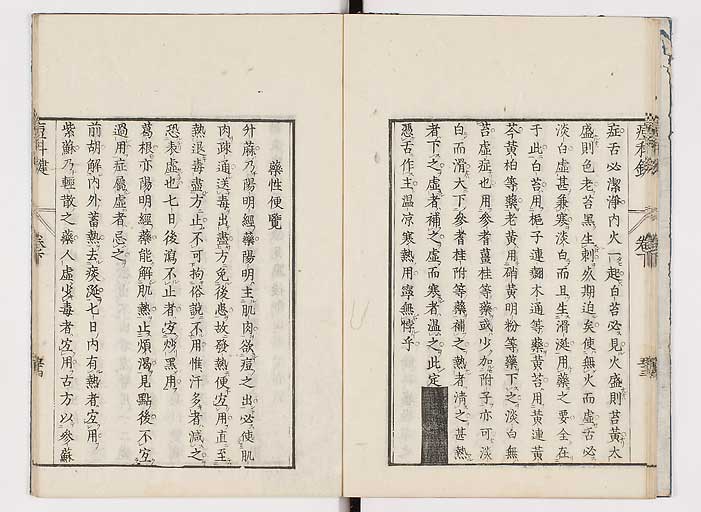 痘科鍵
卷下
症舌必潔淨內火一起白苔必見火盛則苔黃太
盛則色老苔黑生刺炎期迫矣使無火而虛舌必
淡白虛甚兼寒淡白而且生滑涎用藥之要全在
于此白苔用梔子連翹木通等藥黃苔用黃連黃
芩黃柏等藥老黃用硝黃明粉等藥下之淡白無
苔虛症也用參耆薑桂等藥或少加附子亦可淡
白而滑大下參耆桂附等藥補之熱者清之甚熱
者下之虛者補之虛而寒者溫之此定
憑舌作主溫凉寒熱用寧無悖乎
藥性便覽
升蔴乃陽明經藥陽明主肌肉欲痘之出必使肌
肉疎通送毒出盡方免後患故發熱便宜用直至
熱退毒盡方止不可拘俗說不用惟汗多者減之
恐表虛也七日後瀉不止者宜炒黑用
葛根亦陽明經藥能解肌熱止煩渴見點後不宜
過用症屬虛者忌之
前胡解內外蓄熱去痰涎七日內有熱者宜用
紫蘇乃輕散之藥人虛少毒者宜用古方以參蘇
痘科鍵
卷下